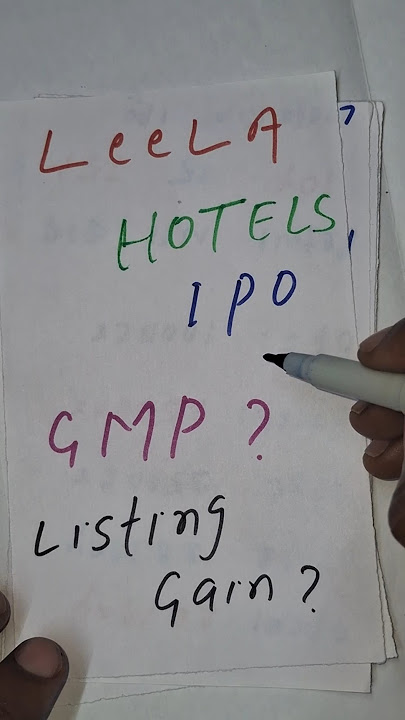 LeeLA
HOTELS
IPO
GMP ?
Listing
Gain ?